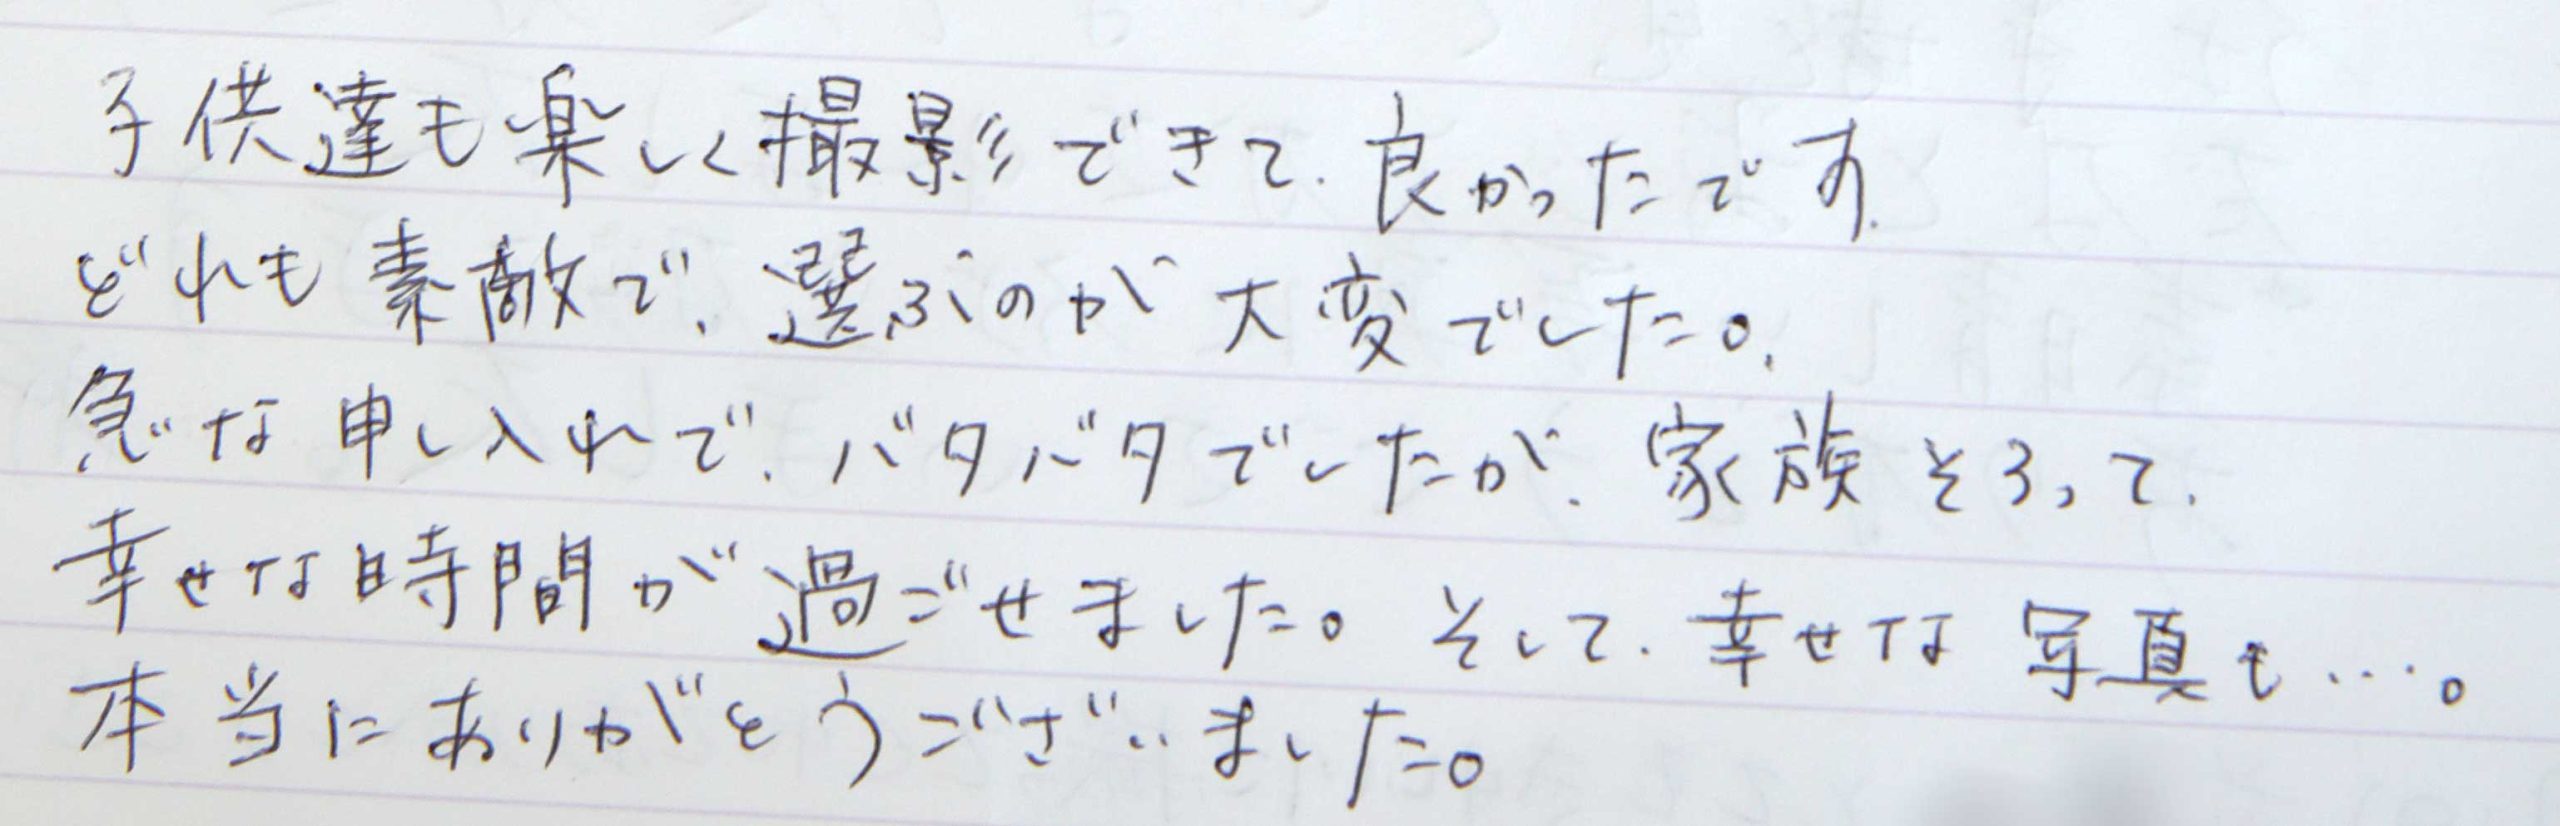 子供達も楽しく撮影できて、良かったです。
どれも素敵で、選ぶのが大変でした。
急な申し入れで、バタバタでしたが、家族そろって、
幸せな時間が過ごせました。そして、幸せな写真も…。
本当にありがとうございました。